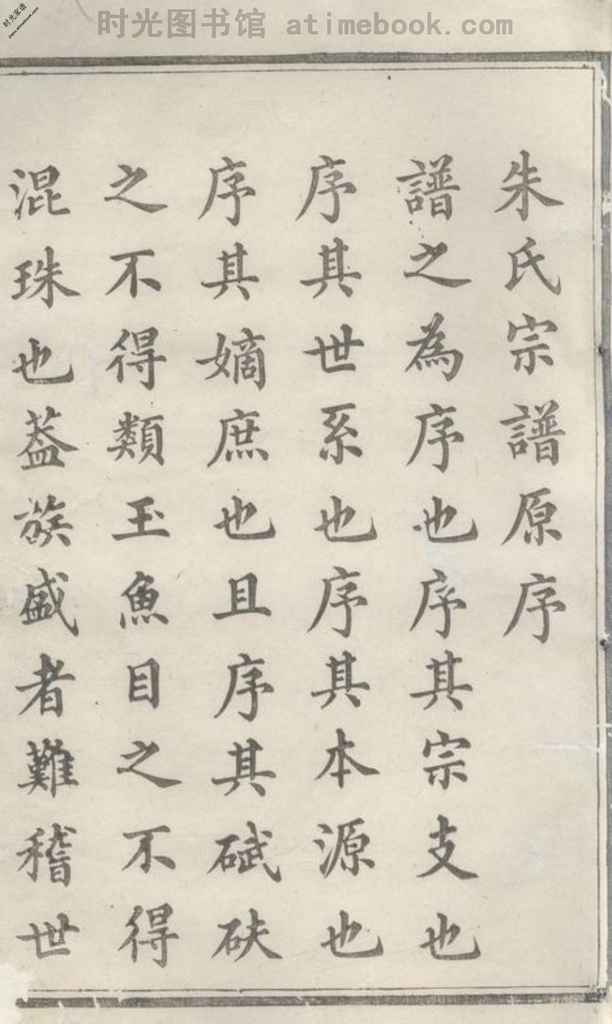 时光图书馆 atimebook.com
朱氏宗譜原序
譜之為序也序其宗支也
序其世系也序其本源也
序其嫡庶也且序其碔砆
之不得類玉魚目之不得
混珠也葢族盛者難稽世